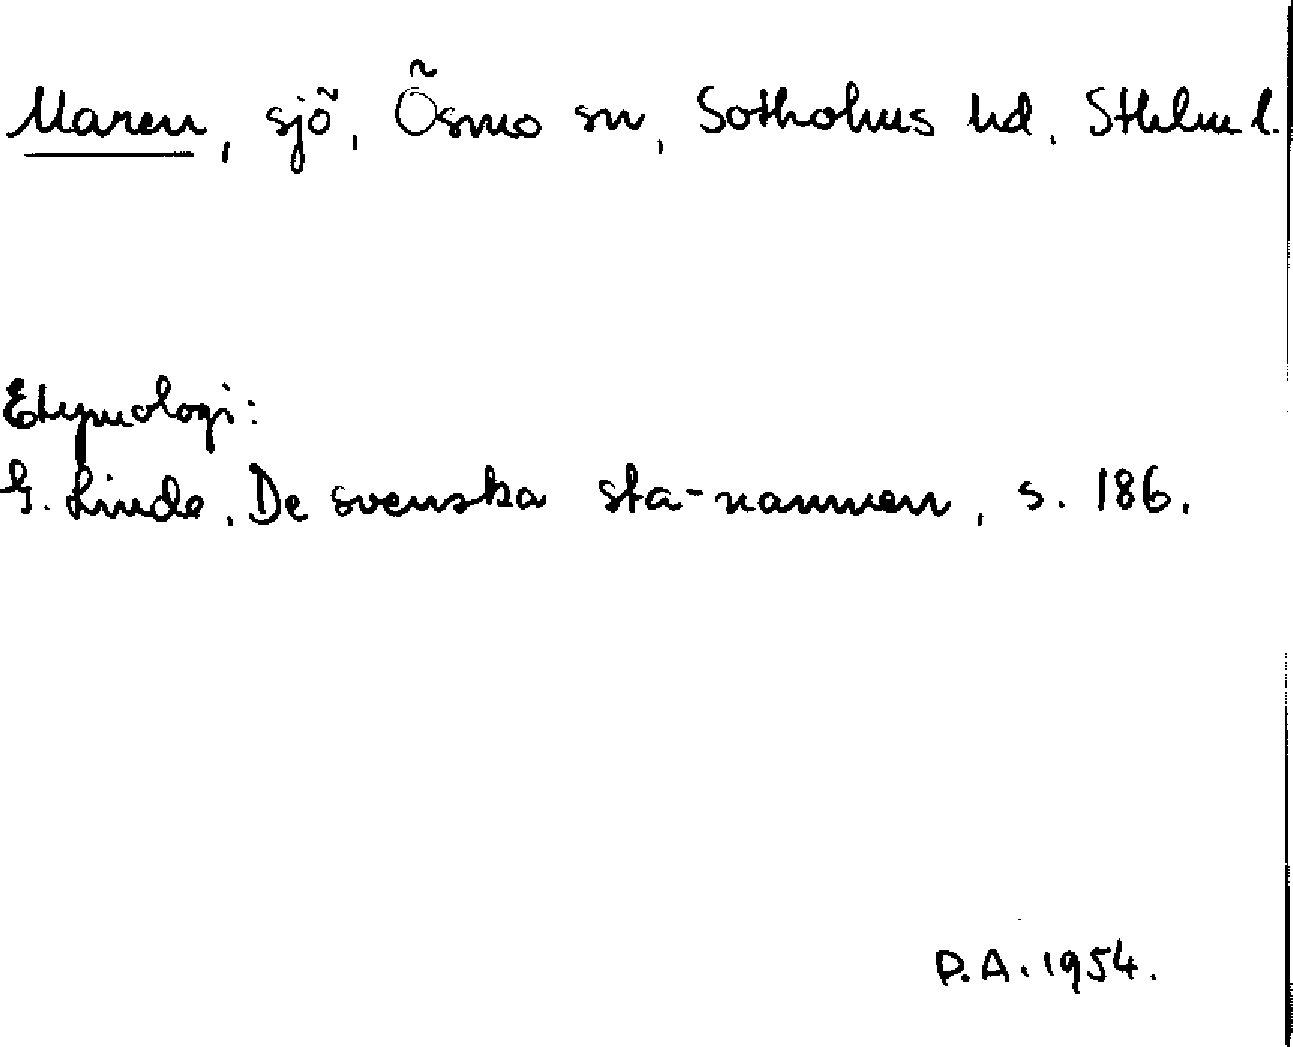 Maren, sjö, Ösmo sn, Sotholms hd, Sthlm l.
Etymologi:
G. Linde, De svenska sta-namnen, s. 186.
D.A. 1954.